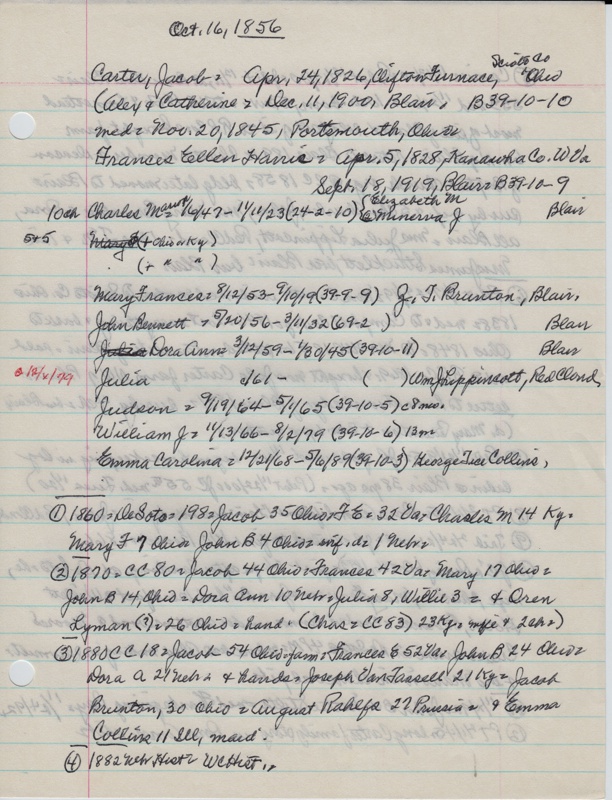 Oct. 16, 1856
Scioto Co
Carter, Jacob = Apr. 24, 1826, Clifton Furnace, Ohio
(Aley & Catherine = Dec. 11, 1900, Blair, B39-10-10
med = Nov. 20, 1845, Portsmouth, Ohio
Frances Ellen Harris = Apr. 5, 1828, Kanawha Co. W Va
Sept. 18, 1919, Blair = B39-10-9
10th Charles M = 16/47 - 11/11/23 (24-2-10) { Elizabeth M Blair
& Minerva J
5+5 Mary F (+ Ohio or Ky)
(+ " ")
Mary Frances = 8/12/53 - 9/10/19 (39-9-9) J. T. Brunton, Blair,
John Bennett = 5/20/56 - 3/11/32 (69-2 ) Blair
Julia Dora Ann = 3/12/59 - 1/30/45 (39-10-11) Blair
12/x/79 Julia c/61 - ( ) Wm J Lippincott, Red Cloud,
Judson = 9/19/64 - 5/1/65 (39-10-5) c 8 mo.
William J = 11/13/66 - 8/2/79 (39-10-6) 12m
Emma Carolina = 12/21/68 - 5/6/89 (39-10-3) George Collins,
① 1860 = DeSoto = 198 = Jacob 35 Ohio = F E = 32 Va = Charles M 14 Ky =
Mary F 7 Ohio = John B 4 Ohio = inf. d = 1 Nebr =
② 1870 = CC 80 = Jacob 44 Ohio = Frances 42 Va = Mary 17 Ohio =
John B 14, Ohio = Dora Ann 10 Nebr = Julia 8, Willie 3 = & Oren
Lyman (?) = 26 Ohio = hand. (Chas = CC 83) 23 Ky = wife & 2 ch =)
③ 1880 CC 18 = Jacob 54 Ohio = farm = Frances E 52 Va = John B 24 Ohio =
Dora A 21 Nebr = 4 hands = Joseph Van Tassell 21 Ky = Jacob
Brunton, 30 Ohio = August Rahlfs 27 Prussia = & Emma
Collins 11 Ill, maid
④ 1882 Nebr Hist =